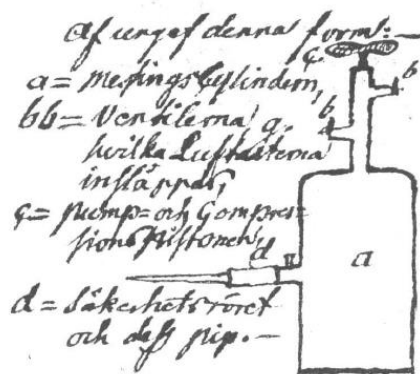 Af ungef denna form:—
ç.
a= Messings Cylindern,
b
bb= Ventilerna g.
b
hvilka Luftarterna
insläppas,
ç= pump= och Compres=
sions pistonen,
a
d
d= säkerhetsröret
och dess pip.—